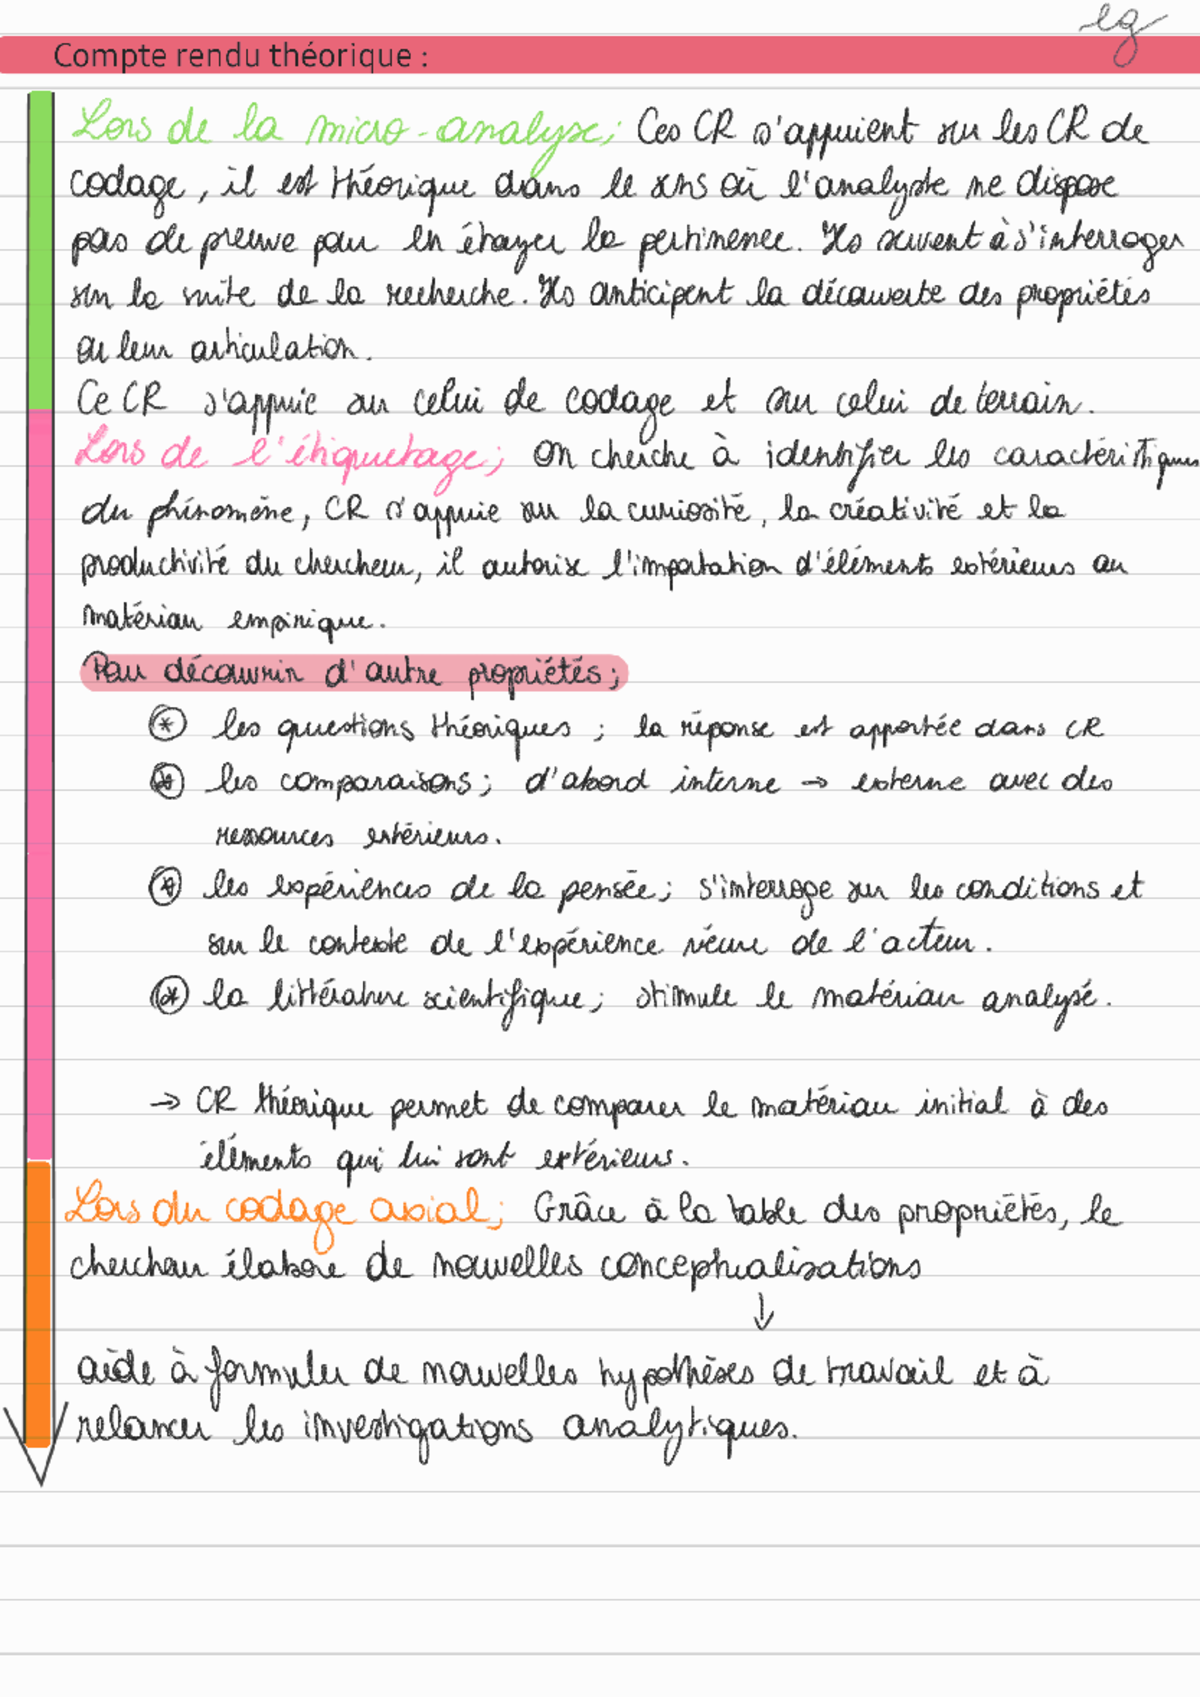 eg
Compte rendu théorique :
Lors de la micro-analyse; Ces CR s'appuient sur les CR de
codage, il est théorique dans le sens où l'analyste ne dispose
pas de preuve pour en étayer la pertinence. Ils servent à s'interroger
sur la suite de la recherche. Ils anticipent la découverte des propriétés
ou leur articulation.
Ce CR s'appuie sur celui de codage et sur celui de terrain.
Lors de l'étiquetage; on cherche à identifier les caractéristiques
du phénomène, CR s'appuie sur la curiosité, la créativité et la
productivité du chercheur, il autorise l'importation d'éléments extérieurs au
matériau empirique.
Pour découvrir d'autre propriétés;
les questions théoriques ; la réponse est apportée dans CR
les comparaisons; d'abord interne → externe avec des
ressources extérieurs.
les expériences de la pensée; s'interroge sur les conditions et
sur le contexte de l'expérience vécue de l'acteur.
la littérature scientifique; stimule le matériau analysé.
→ CR théorique permet de comparer le matériau initial à des
éléments qui lui sont extérieurs.
Lors du codage axial; Grâce à la table des propriétés, le
chercheur élabore de nouvelles conceptualisations
↓
aide à formuler de nouvelles hypothèses de travail et à
relancer les investigations analytiques.